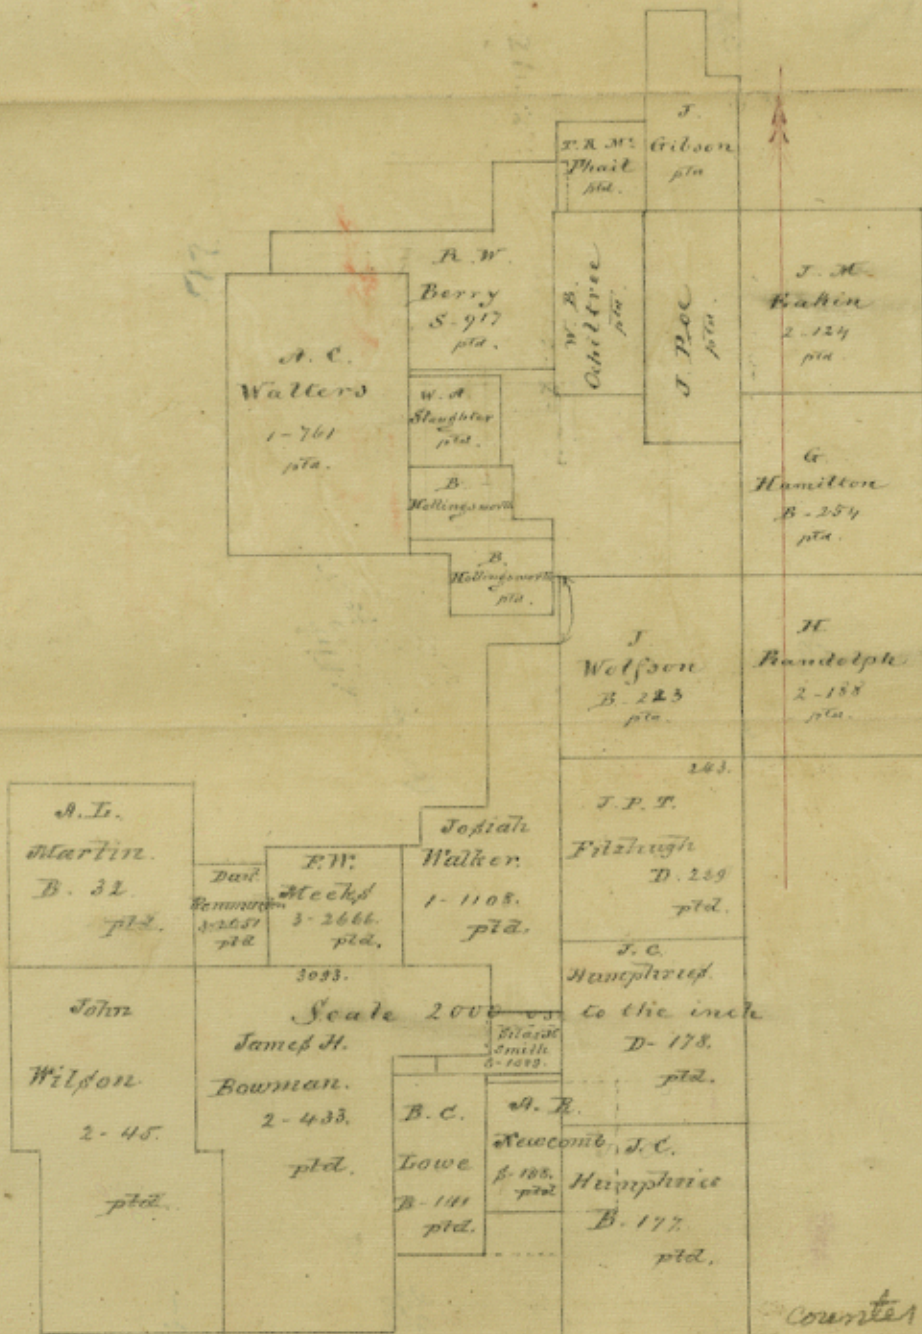 J.
Gibson
ptd
T. R. Mc
Phail
ptd.
R. W.
Berry
S-917
ptd.
W. B.
Ochiltree
ptd.
J. Poe
ptd.
J. M.
2-124
ptd
A. C.
Walters
1-761
ptd.
W. A.
Slaughter
ptd.
B.
Hollingsworth
B.
Hollingsworth
ptd.
G
Hamilton
B-254
ptd.
J
Wolfson
B-223
ptd.
H
Randolph
2-188
ptd.
243.
J. P. T.
Fitzhugh
D. 229
ptd.
A. L.
Martin.
B. 32
ptd.
3-2651
ptd
F. W.
Meeks
3-2666.
ptd.
Josiah
Walker
1-1108.
ptd.
J. C.
Humphries.
D-178.
ptd.
3093.
Scale 2000 vs to the inch
John
Wilson
2-45.
ptd.
James H.
Bowman.
2-433.
ptd.
Smith
B. C.
Lowe
B-141
ptd.
A. R.
Newcomb
S-188.
ptd
J. C.
Humphries
B-177.
ptd.
Counter